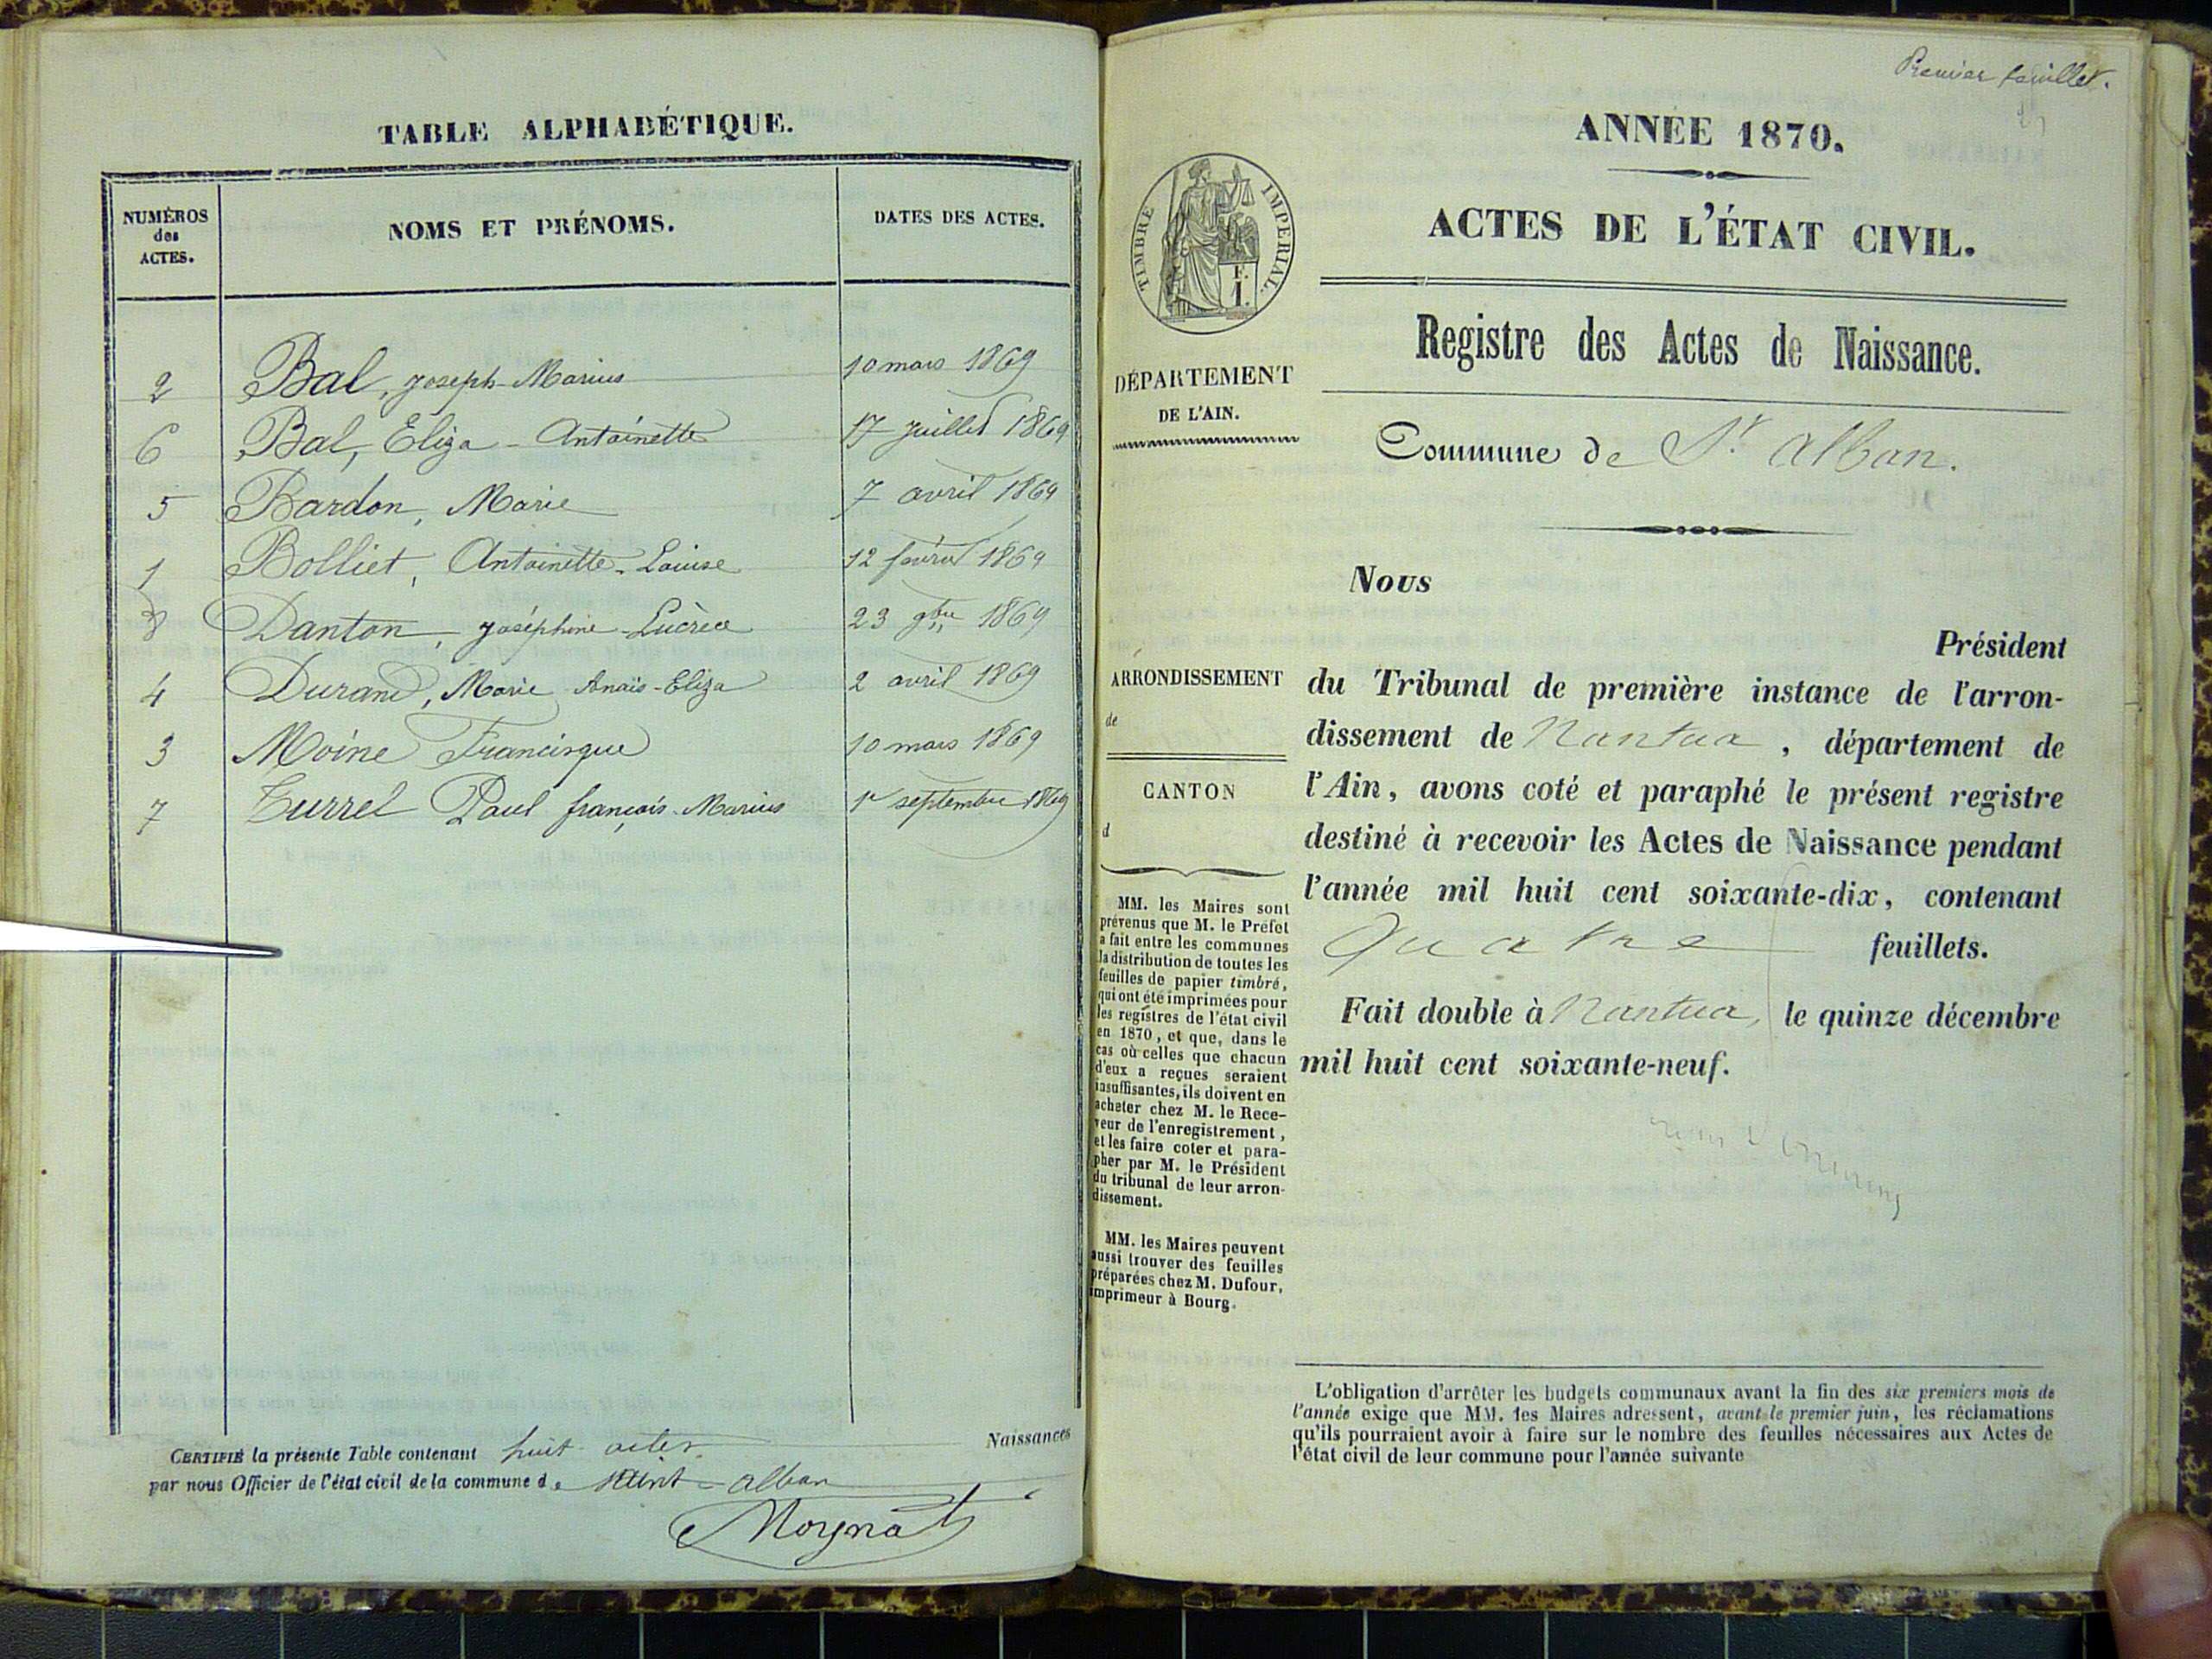 TABLE ALPHABÉTIQUE.
NUMÉROS
des
ACTES.
NOMS ET PRÉNOMS.
DATES DES ACTES.
2 Bal, Joseph-Marius 10 mars 1869
6 Bal, Eliza-Antoinette 17 juillet 1869
5 Bardon, Marie 7 avril 1869
1 Bolliet, Antoinette-Louise 12 février 1869
8 Danton, Joséphine-Lucrèce 23 9bre 1869
4 Durand, Marie Anaïs-Eliza 2 avril 1869
3 Moine Francisque 10 mars 1869
7 Turrel Paul françois-Marius 1r septembre 1869
CERTIFIÉ la présente Table contenant huit actes Naissances
par nous Officier de l'état civil de la commune de Saint-alban
Moynat
Premier feuillet.
ANNÉE 1870.
ACTES DE L'ÉTAT CIVIL.
TIMBRE IMPERIAL.
F.
1.
Registre des Actes de Naissance.
DÉPARTEMENT
DE L'AIN.
Commune de St. Alban.
Nous
Président
du Tribunal de première instance de l'arron-
dissement de Nantua, département de
l'Ain, avons coté et paraphé le présent registre
destiné à recevoir les Actes de Naissance pendant
l'année mil huit cent soixante-dix, contenant
Quatre feuillets.
Fait double à Nantua, le quinze décembre
mil huit cent soixante-neuf.
ARRONDISSEMENT
de
CANTON
d
MM. les Maires sont
prévenus que M. le Préfet
a fait entre les communes
la distribution de toutes les
feuilles de papier timbré,
qui ont été imprimées pour
les registres de l'état civil
en 1870, et que, dans le
cas où celles que chacun
d'eux a reçues seraient
insuffisantes, ils doivent en
acheter chez M. le Rece-
veur de l'enregistrement,
et les faire coter et para-
pher par M. le Président
du tribunal de leur arron-
dissement.
MM. les Maires peuvent
aussi trouver des feuilles
préparées chez M. Dufour,
imprimeur à Bourg.
L'obligation d'arrêter les budgets communaux avant la fin des six premiers mois de
l'année exige que MM. les Maires adressent, avant le premier juin, les réclamations
qu'ils pourraient avoir à faire sur le nombre des feuilles nécessaires aux Actes de
l'état civil de leur commune pour l'année suivante